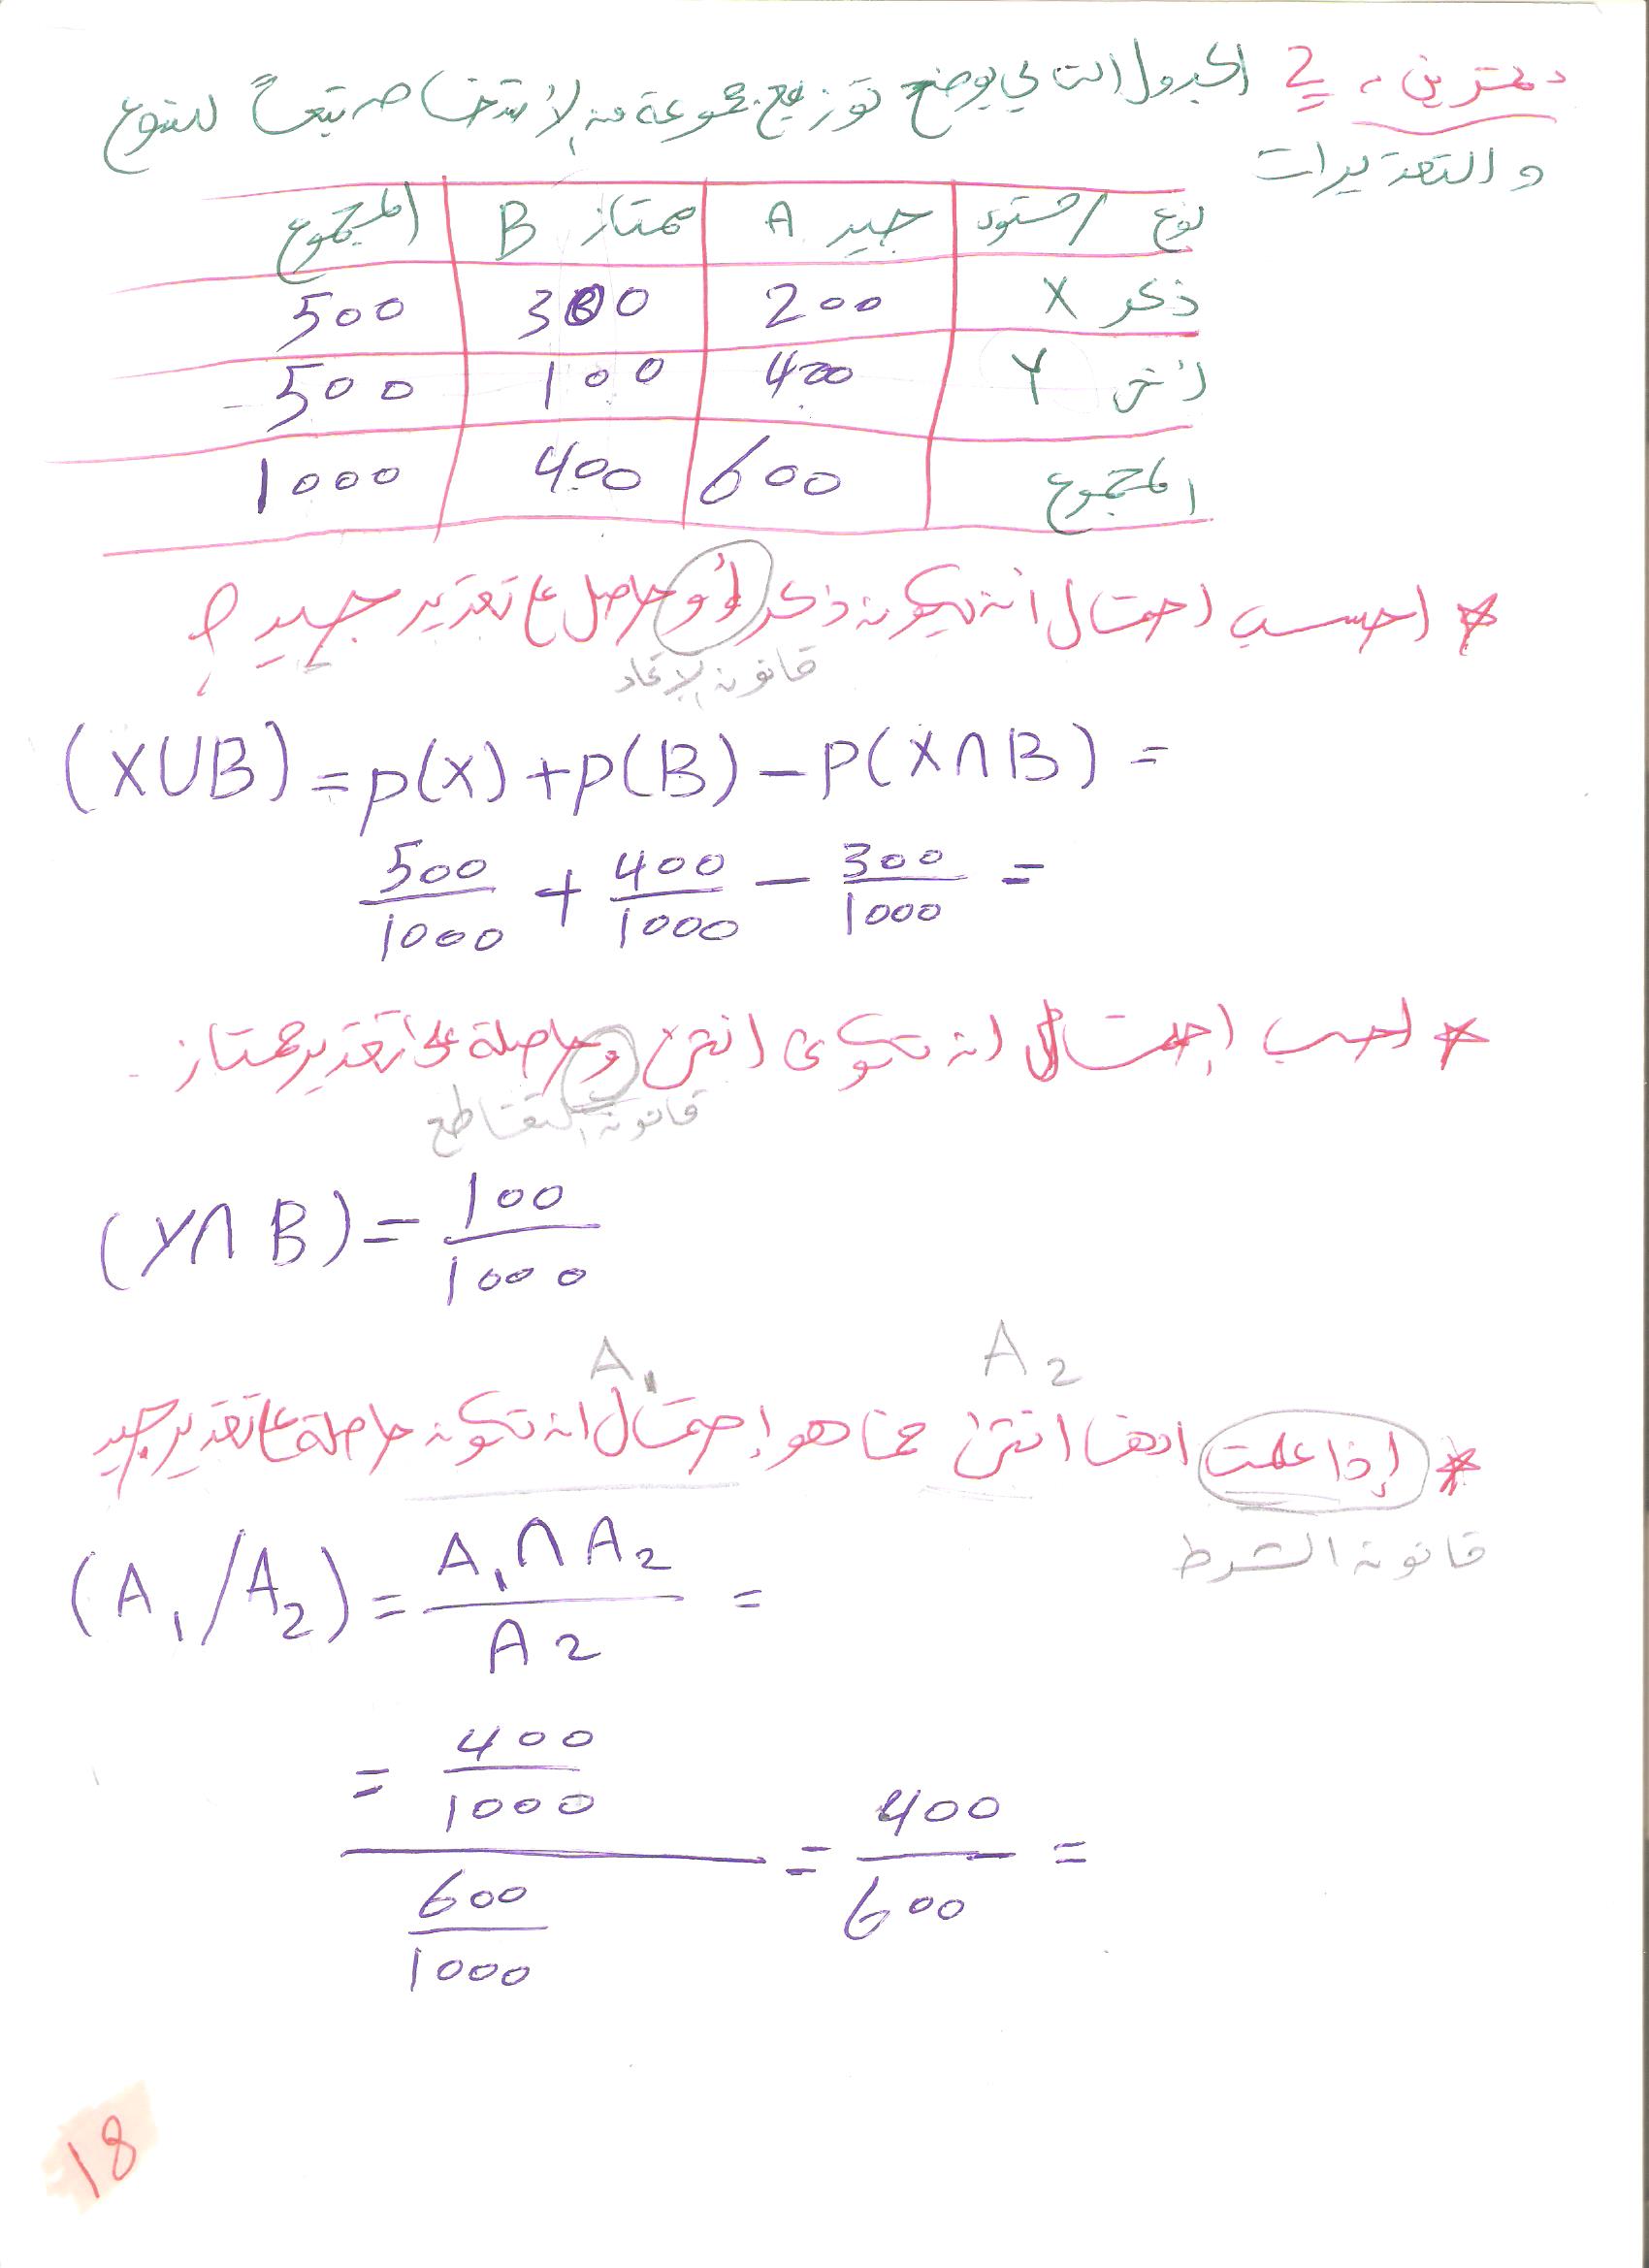 تمرين 2 الجدول التالي يوضح توزيع مجموعة من الأشخاص تبعاً للنوع
والتقديرات
نوع / مستوى جيد A ممتاز B المجموع
ذكر X 200 300 500
انثى Y 400 100 500
المجموع 600 400 1000
* احسب احتمال ان يكون ذكر أو حاصل على تقدير جيد ؟
قانون الإتحاد
(X∪B) = p(X) + p(B) − P(X∩B) =
500/1000 + 400/1000 − 300/1000 =
* احسب إحتمال ان تكون انثى و حاصلة على تقدير ممتاز
قانون التقاطع
(Y∩B) = 100/1000
A2 A1
* إذا علمت انها انثى فما هو إحتمال ان تكون حاصلة على تقدير جيد
قانون الشرط
(A1/A2) = A1∩A2 / A2 =
= 400/1000 / 600/1000 = 400/600 =
18